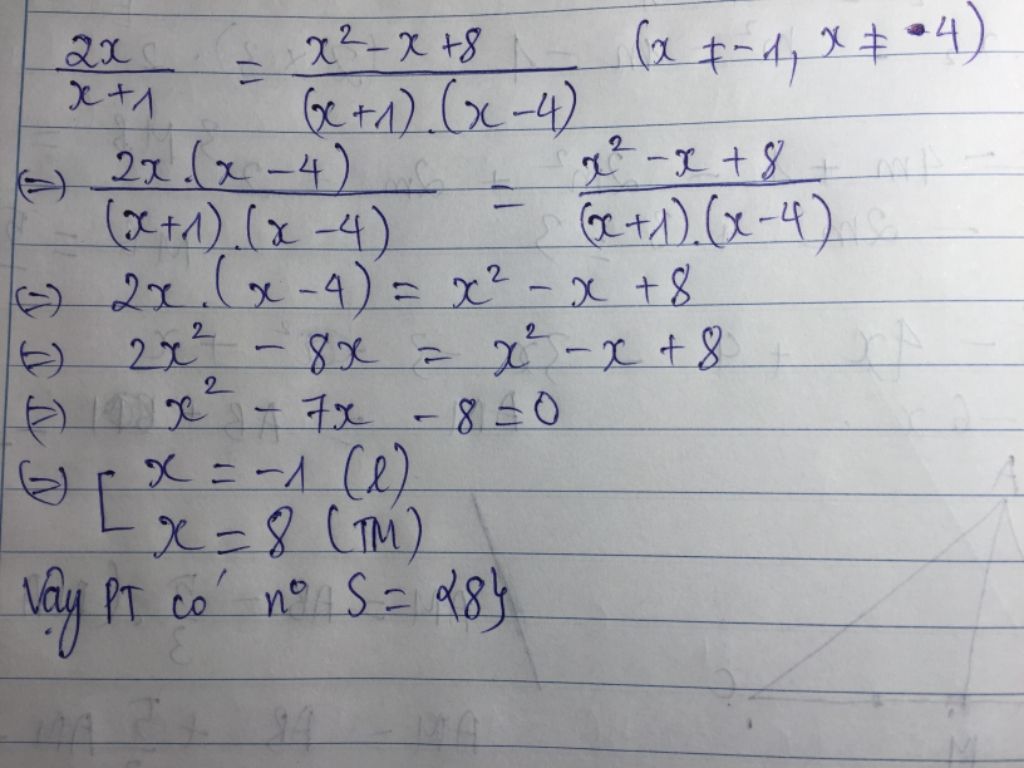 2x/(x+1) = (x² - x + 8)/((x+1).(x-4)) (x ≠ -1, x ≠ 4)
(=) (2x.(x-4))/((x+1).(x-4)) = (x² - x + 8)/((x+1).(x-4))
(=) 2x.(x-4) = x² - x + 8
(=) 2x² - 8x = x² - x + 8
(=) x² - 7x - 8 = 0
(=) [ x = -1 (l)
x = 8 (TM)
Vậy PT có nº S = {8}
A
C
M